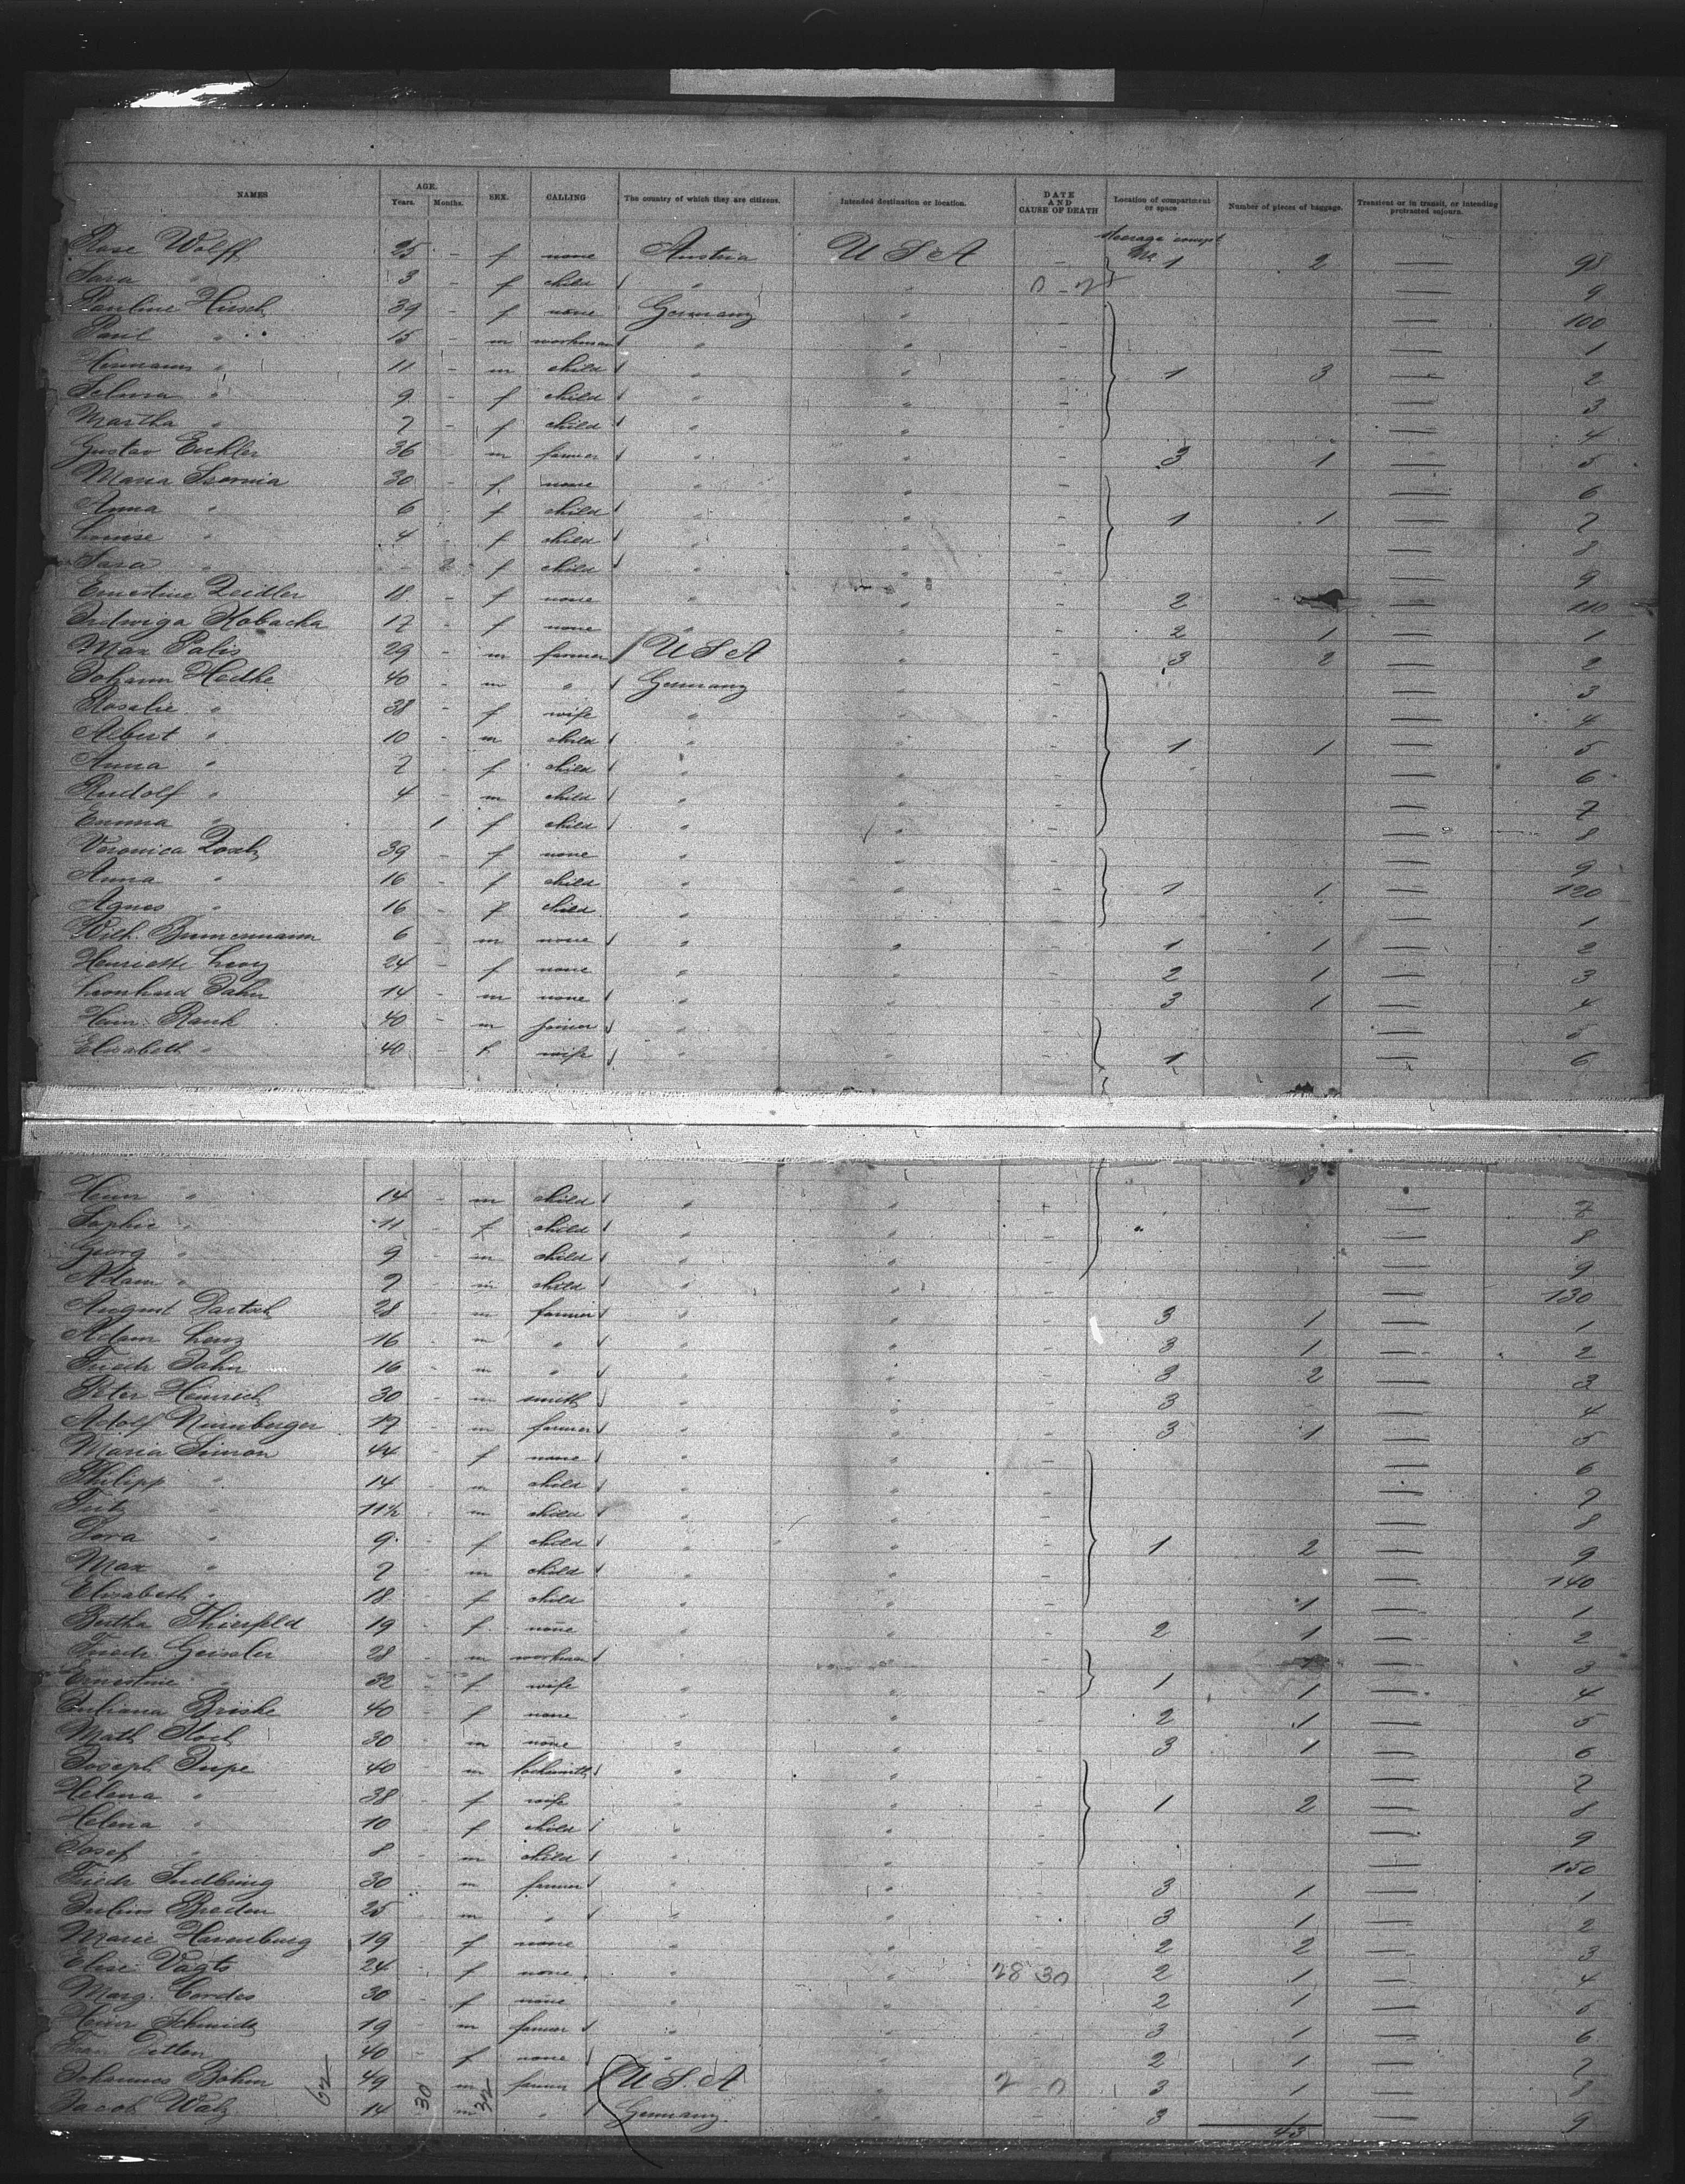 NAMES AGE. Years. Months. SEX. CALLING The country of which they are citizens. Intended destination or location. DATE AND CAUSE OF DEATH Location of compartment or space Number of pieces of baggage. Transient or in transit, or intending protracted sojourn.
Steerage compt
Rose Wolff 25 - f none Austria U S A - No 1 2 — 98
Sara " 3 - f child " " 0-2 — 9
Pauline Hirsch 39 - f none Germany " - — 100
Paul " 15 - m workman " " - — 1
Hermann " 11 - m child " " - 1 3 — 2
Selma " 9 - f child " " - — 3
Martha " 7 - f child " " - — 4
Gustav Eichler 36 m farmer " " - 3 1 — 5
Maria 30 - f none " " - — 6
Anna " 6 - f child " " - 1 1 — 7
Louise " 4 - f child " " - — 8
Sara " - 2 f child " " - — 9
Ernestine Zeidler 18 - f none " " - 2 — 110
Hedwiga Kobacka 17 - f none " " - 2 1 — 1
Max Palis 29 - m farmer U S A " - 3 2 — 2
Johann Hedke 40 - m " Germany " - — 3
Rosalie " 38 - f wife " " - — 4
Albert " 10 - m child " " - 1 1 — 5
Anna " 7 - f child " " - — 6
Rudolf " 4 - m child " " - — 7
Emma " 1 f child " " - — 8
Veronica Zosch 39 - f none " " - — 9
Anna " 16 - f child " " - 1 1 — 120
Agnes " 16 - f child " " - — 1
Wilh. 6 - m none " " - 1 1 — 2
Henriette Levy 24 - f none " " - 2 1 — 3
Leonhard Jahn 14 - m none " " - 3 1 — 4
Heinr. Rauh 40 - m joiner " " - — 5
Elisabeth " 40 - f. wife " " - 1 — 6
Heinr " 14 - m child " " - — 7
Sophie " 11 - f child " " - — 8
Georg " 9 - m child " " - — 9
Adam " 7 - m child " " - — 130
August Partsch 28 - m farmer " " - 3 1 — 1
Adam Lenz 16 - m " " " - 3 1 — 2
Friedr Jahn 16 - m " " " - 3 2 — 3
Peter Heinrich 30 - m smith " " - 3 - — 4
Adolf Nurnberger 17 - m farmer " " - 3 1 — 5
Maria Simon 44 - f none " " - — 6
Philipp " 14 - m child " " - — 7
Fritz " 11½ m child " " - — 8
Dora " 9 - f child " " - 1 2 — 9
Max " 7 - m child " " - — 140
Elisabeth " 18 - f child " " - 1 — 1
Bertha Thierfeld 19 - f none " " - 2 1 — 2
Friedr. Geissler 28 - m workman " " - 1 — 3
Ernestine " 32 - f wife " " - 1 1 — 4
Juliana Briske 40 - f none " " - 2 1 — 5
Math Koch 30 - m none " " - 3 1 — 6
Joseph Jupe 40 - m locksmith " " - — 7
Helena " 38 - f wife " " - 1 2 — 8
Helena " 10 - f child " " - — 9
Josef " 8 - m child " " - — 150
Friedr 30 - m farmer " " - 3 1 — 1
Julius Breden 25 - m " " " - 3 1 — 2
Marie Harenburg 19 - f none " " - 2 2 — 3
Elise Vagts 24 - f none " " 28 30 2 1 — 4
Marg. Cordes 30 - f none " " - 2 1 — 5
Heinr Schmidt 19 - m farmer " " - 3 1 — 6
40 - f none " " - 2 1 — 7
Johannes Böhm 49 m farmer U. S. A " 2 0 3 1 — 8
Jacob Walz 14 m " Germany. " 3 — 9
62 30 32 43